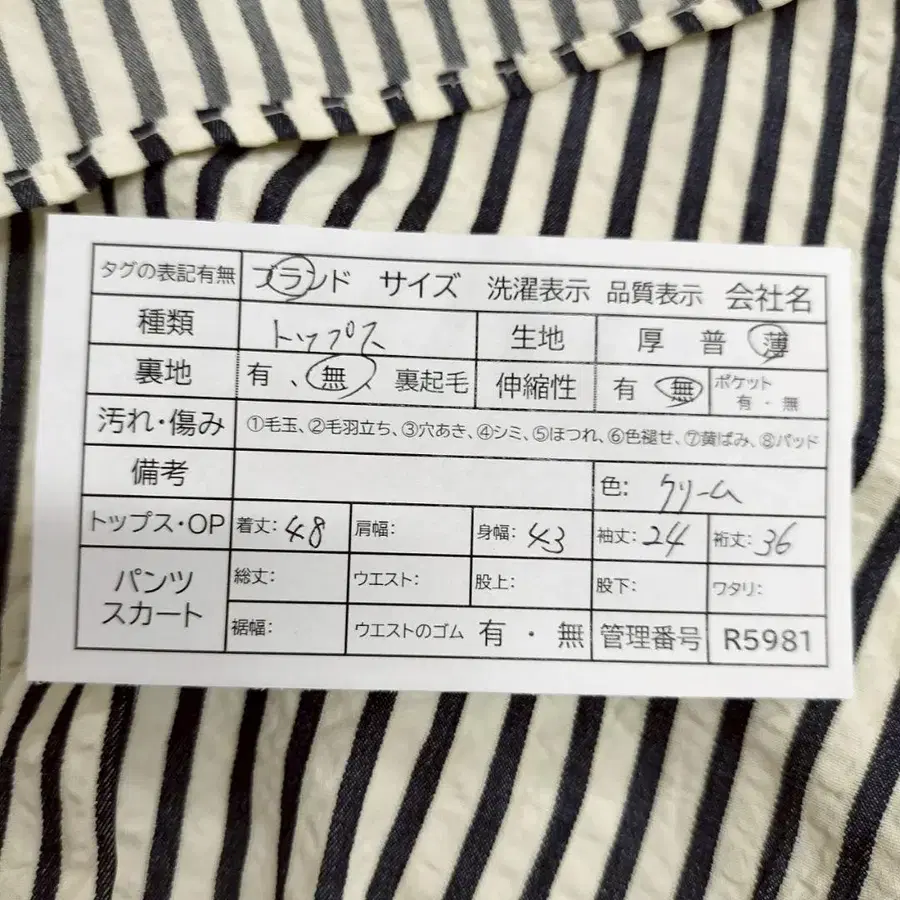 タグの表記有無 ブランド サイズ 洗濯表示 品質表示 会社名
種類 トップス 生地 厚 普 薄
裏地 有 、 無 、 裏起毛 伸縮性 有 無 ポケット 有・無
汚れ・傷み ①毛玉、②毛羽立ち、③穴あき、④シミ、⑤ほつれ、⑥色褪せ、⑦黄ばみ、⑧パッド
備考 色: クリーム
トップス・OP 着丈: 48 肩幅: 身幅: 43 袖丈: 24 裄丈: 36
パンツ スカート 総丈: ウエスト: 股上: 股下: ワタリ:
裾幅: ウエストのゴム 有 ・ 無 管理番号 R5981